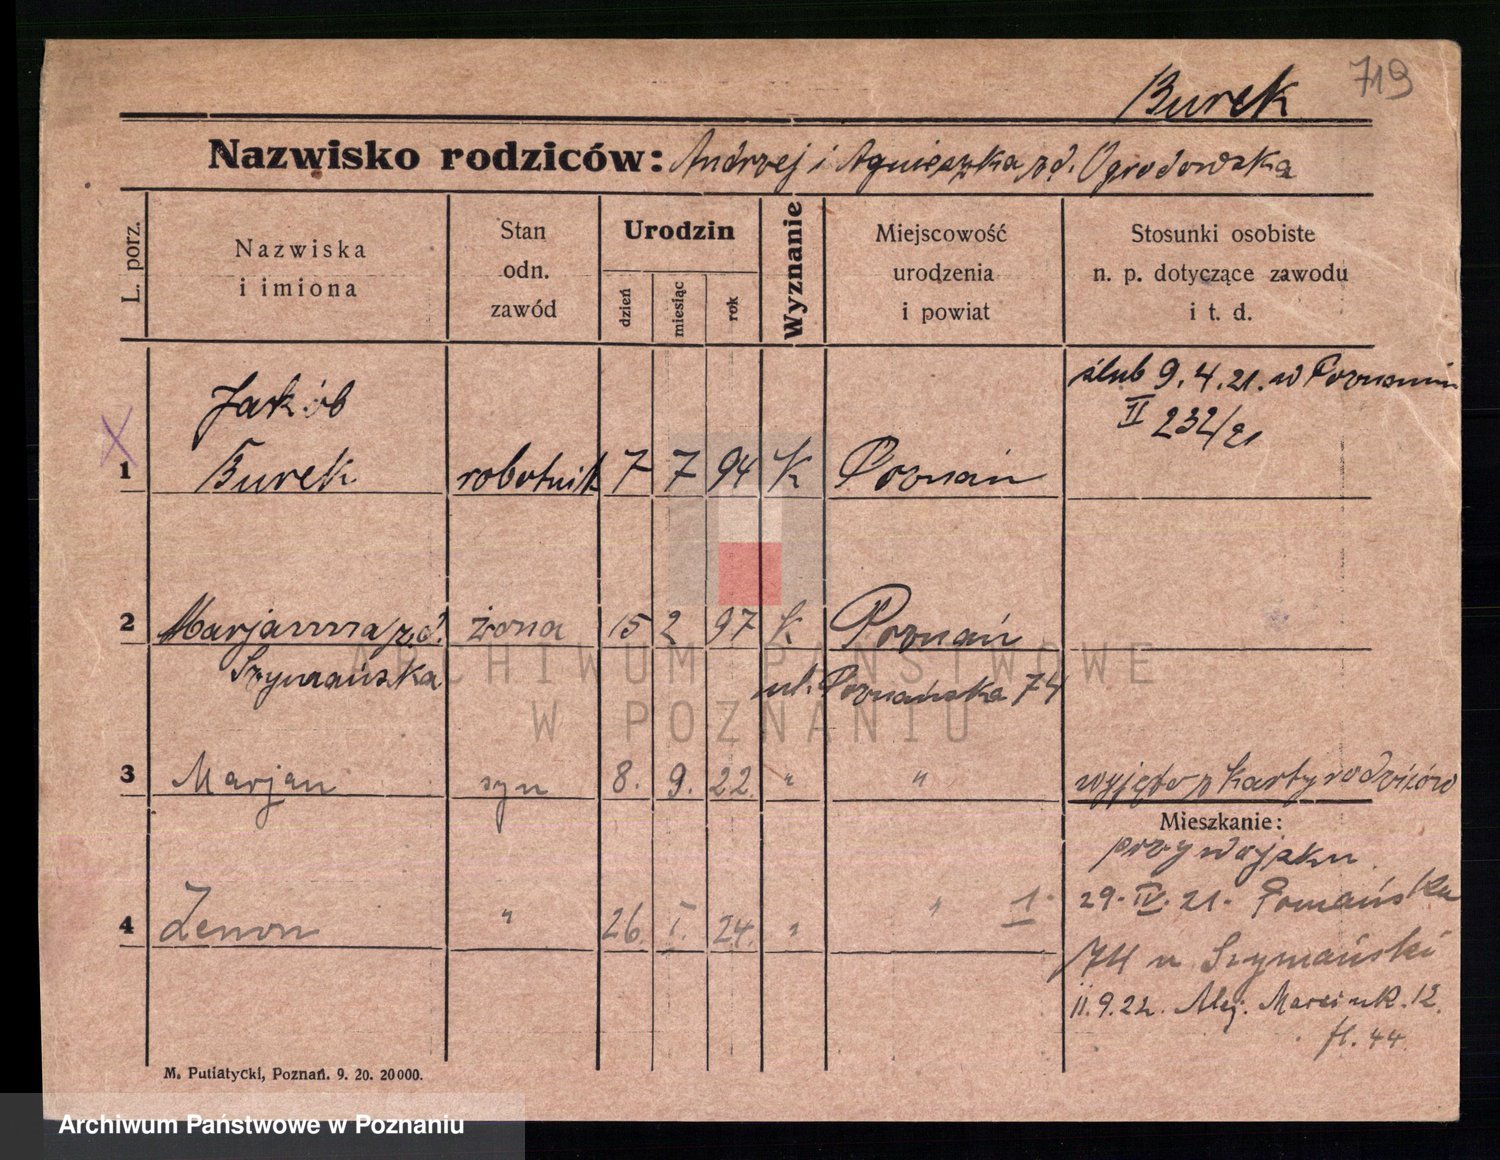 719
Burek
Nazwisko rodziców: Andrzej i Agnieszka zd. Ogrodowska
L. porz.
Nazwiska i imiona
Stan odn. zawód
Urodzin
dzień
miesiąc
rok
Wyznanie
Miejscowość urodzenia i powiat
Stosunki osobiste n. p. dotyczące zawodu i t. d.
ślub 9.4.21. w Poznaniu
II 232/21
Jakób
1 Burek robotnik 7 7 94 K Poznań
2 Marjanna z d. żona 15 2 97 K Poznań
Szymańska
ul. Poznańska 74
3 Marjan syn 8. 9. 22. " "
wyjęto z karty rodziców
Mieszkanie:
przy wojsku
29. IV. 21. Poznańska
4 Zenon " 26. I. 24. " " 1.
74 u Szymański
11.9.22. Alej. Marcink. 12.
M. Putiatycki, Poznań. 9. 20. 20000.
ARCHIWUM PAŃSTWOWE
W POZNANIU
Archiwum Państwowe w Poznaniu